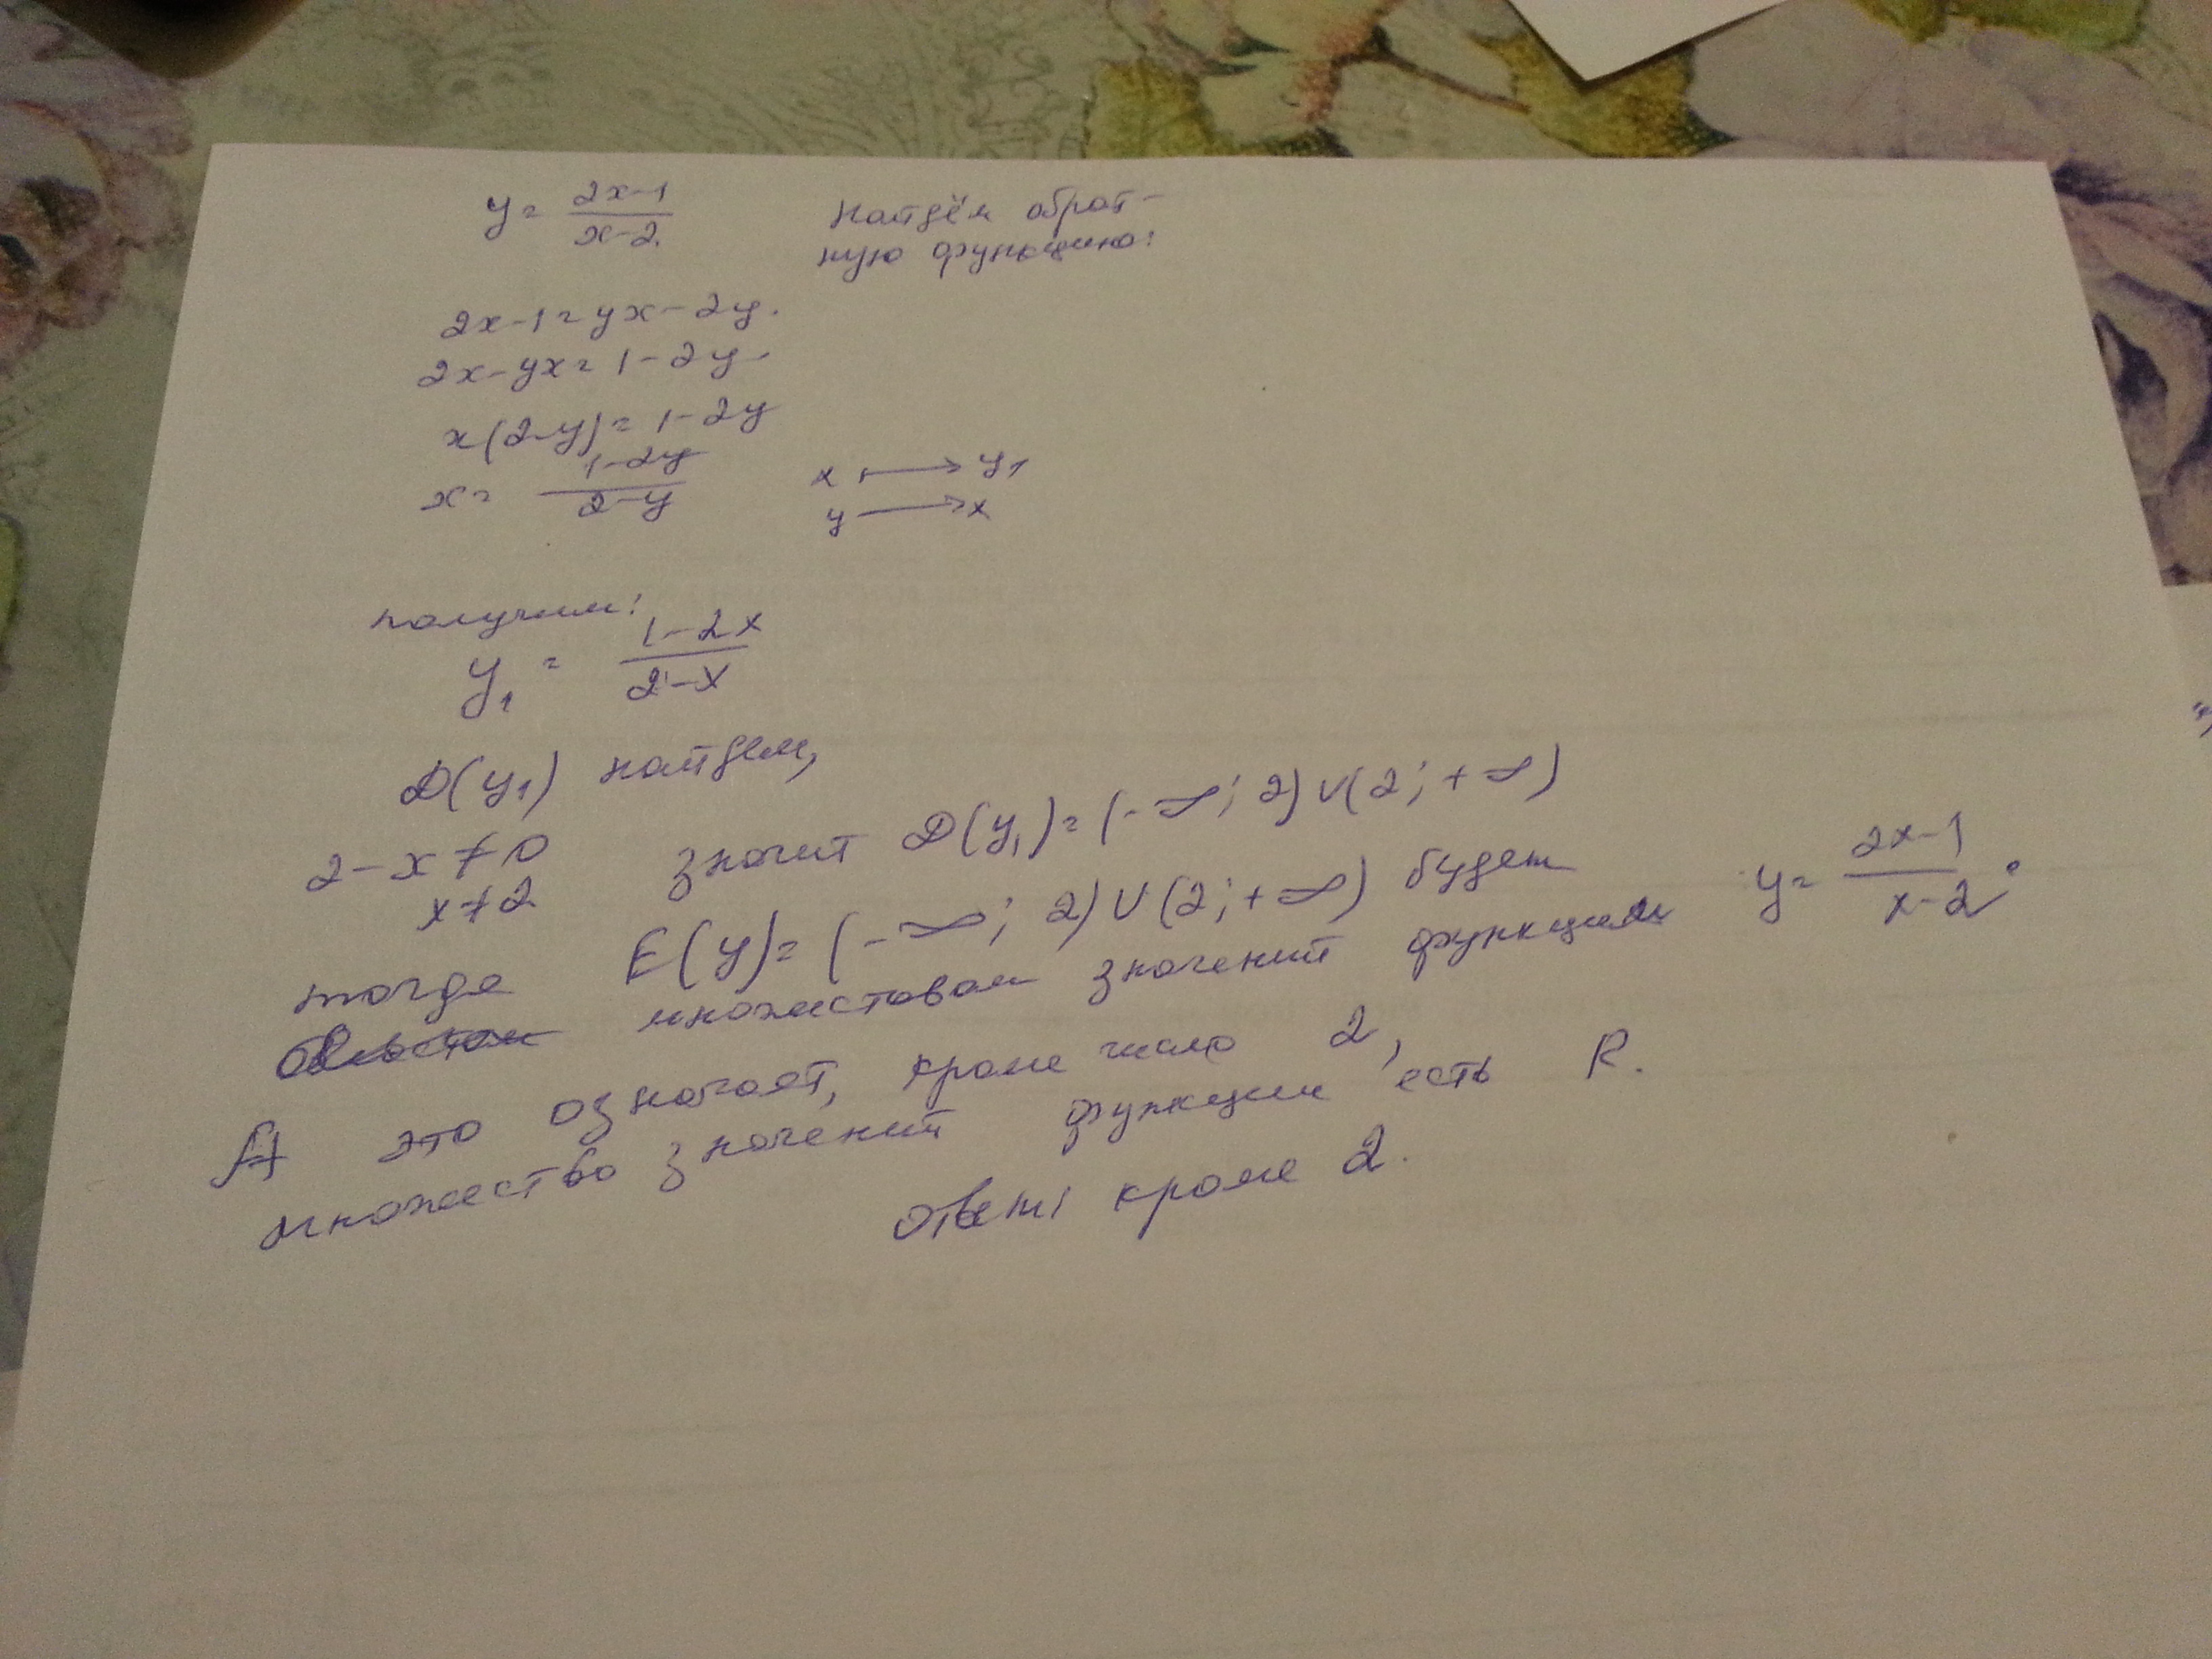 y = (2x-1)/(x-2) Найдём обрат-
ную функцию:
2x-1 = yx-2y.
2x-yx = 1-2y
x(2-y) = 1-2y
x = (1-2y)/(2-y)
x ↦ y₁
y → x
получим:
y₁ = (1-2x)/(2-x)
D(y₁) найдем,
2-x≠0 значит D(y₁) = (-∞; 2)∪(2; +∞)
x≠2
тогда E(y) = (-∞; 2)∪(2; +∞) будет
множеством значений функции y = (2x-1)/(x-2).
А это означает, кроме числа 2,
множество значений функции есть R.
ответ: кроме 2.